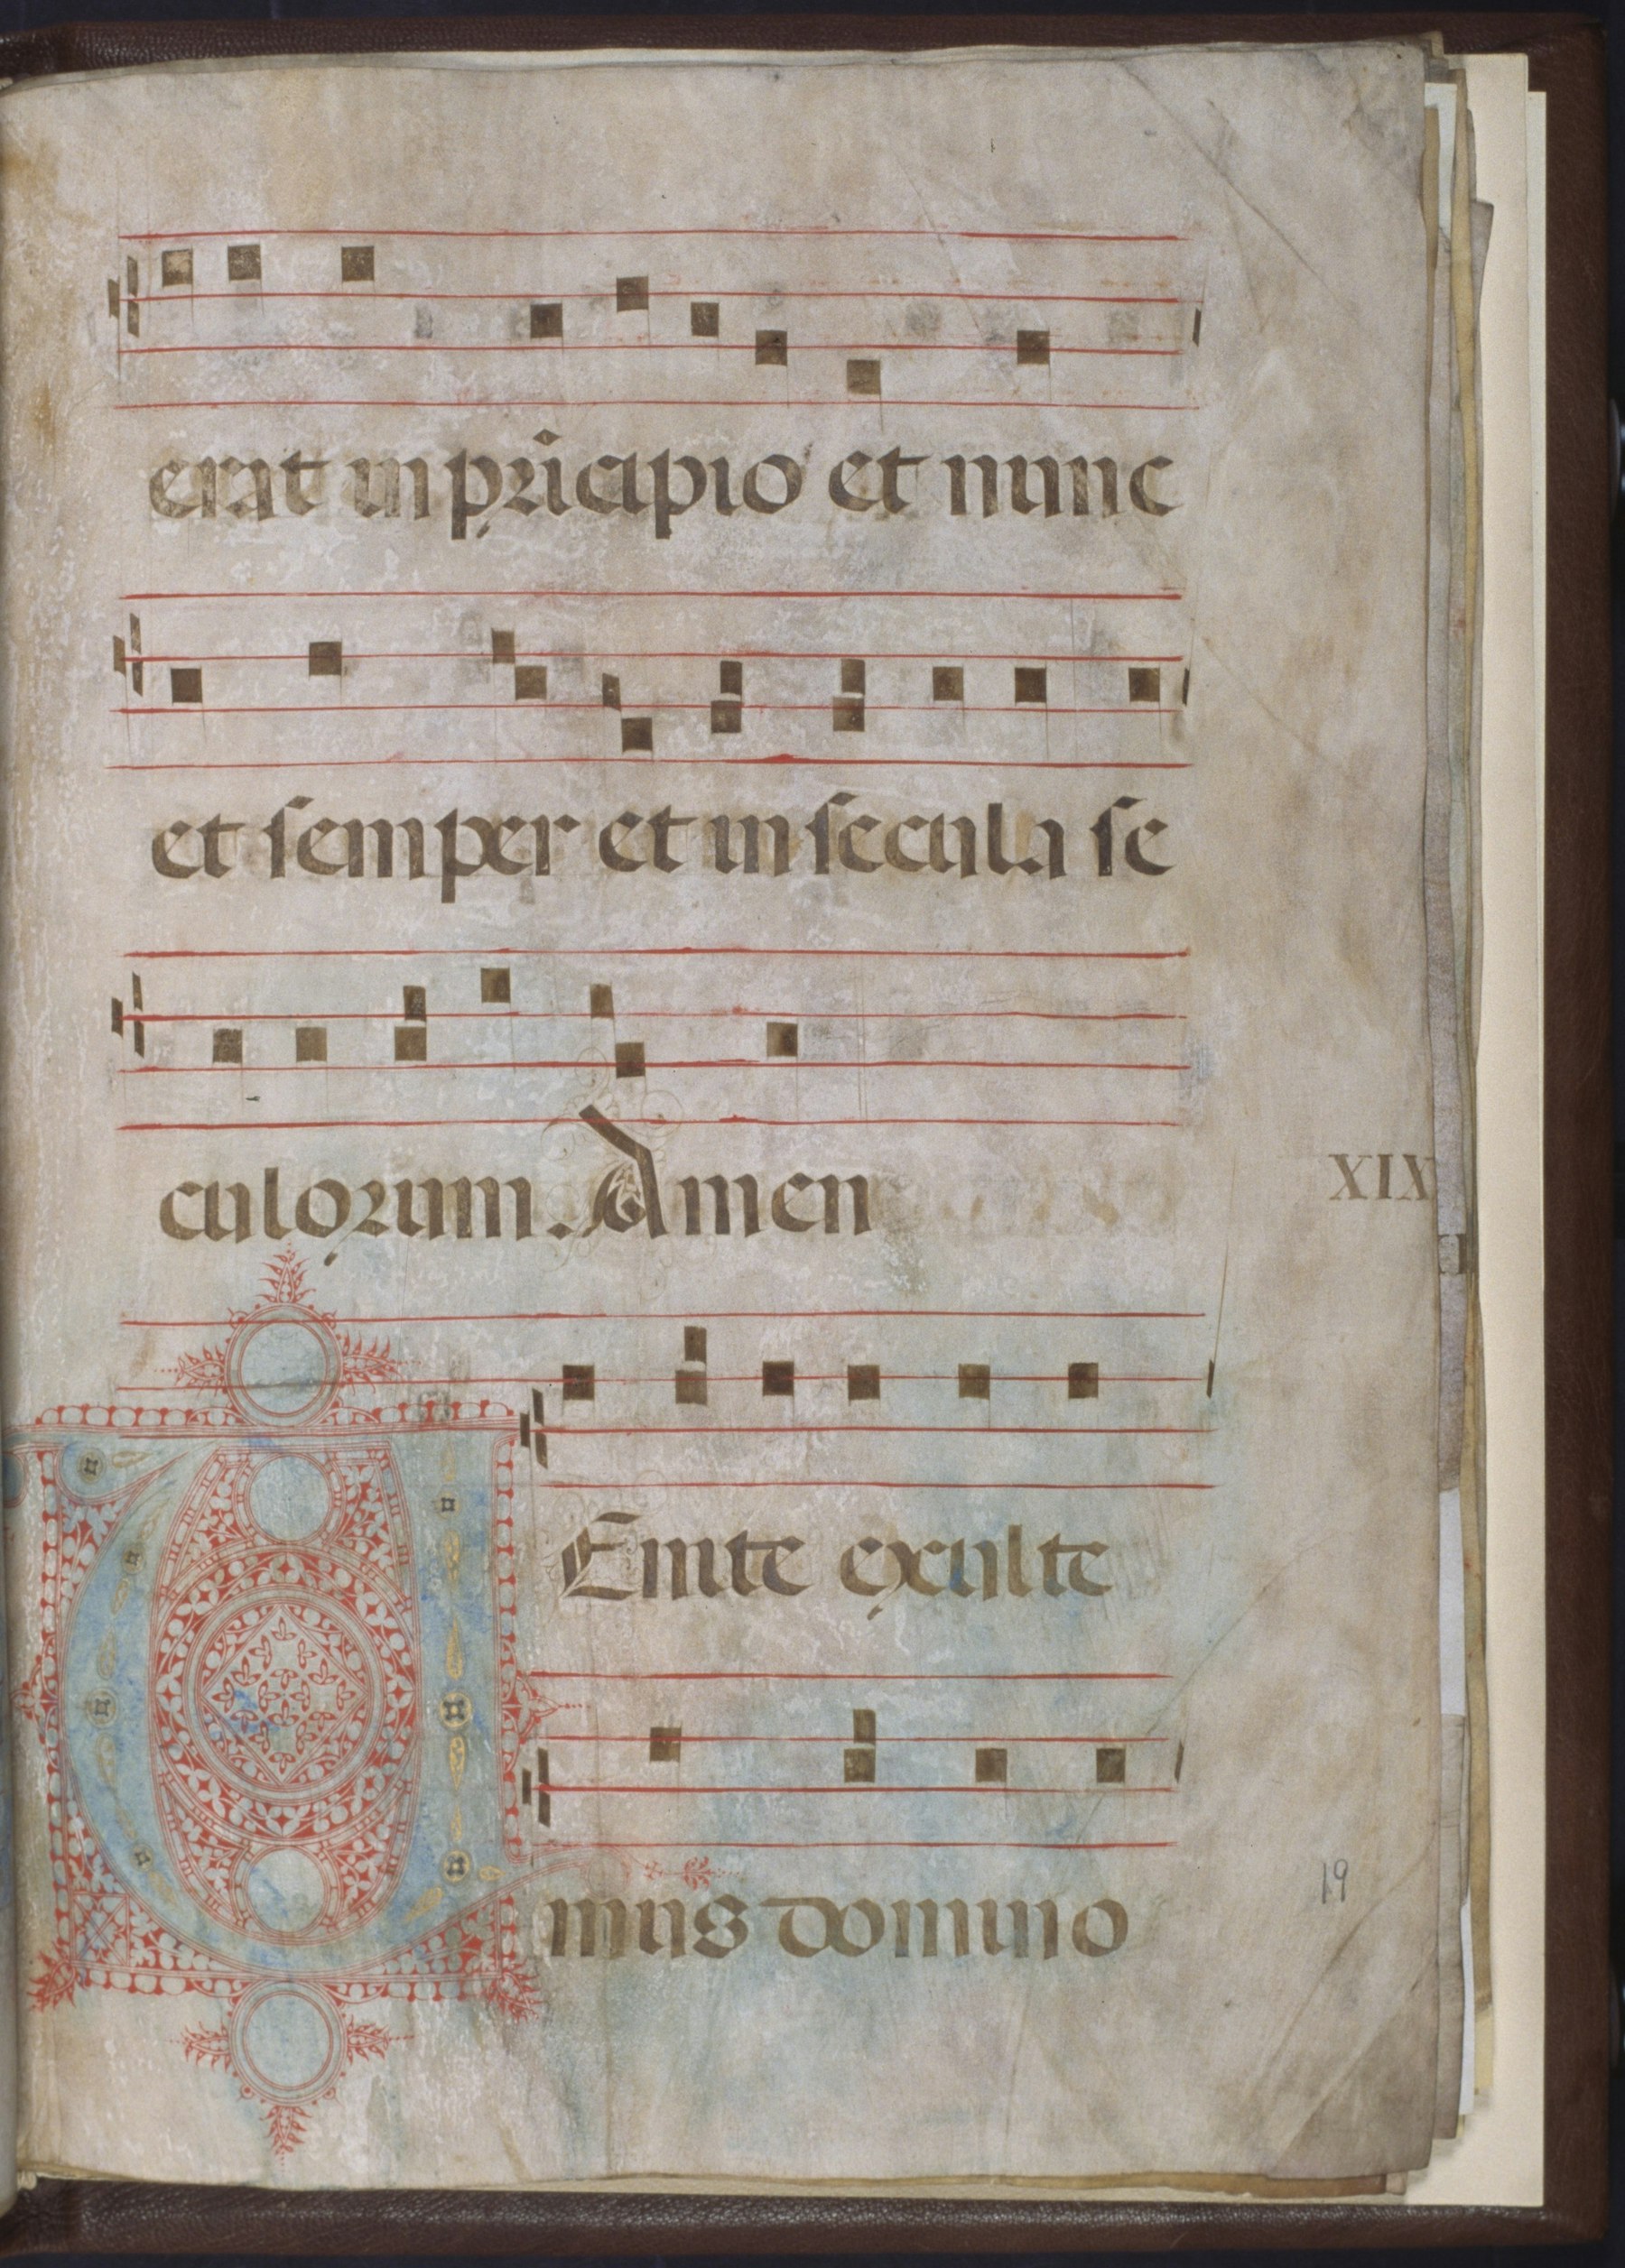 erat in pricipio et nunc
et semper et in secula se
culorum. Amen
XIX
VEnite exulte
mus domino
19